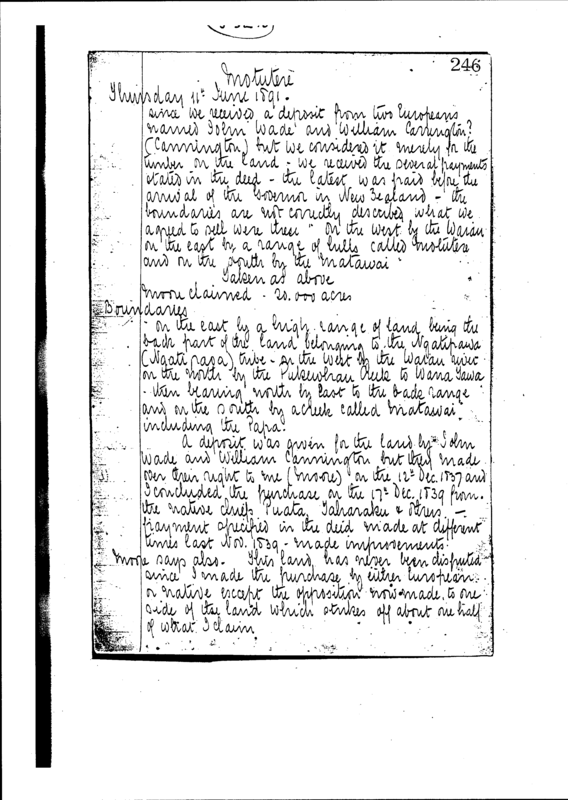 246
Motutere
Thursday 11th June 1891.
since we received a deposit from two Europeans
named John Wade and William Cannington?
(Cannington) but we considered it merely for the
timber on the land - we received the several payments
stated in the deed - the latest was paid before the
arrival of the Governor in New Zealand - the
boundaries are not correctly described what we
agreed to sell were these " on the west by the Waiau
on the east by a range of hills called Motutere
and on the south by the Matawai "
Taken as above
Moore claimed - 20.000 acres
Boundaries
- on the east by a high range of land being the
back part of the land belonging to the Ngatipawa
(Ngati paoa) tribe - on the West by the Waiau river
on the north by the Creek to
- then bearing north by East to the back range
and on the South by a creek called Matawai.
including the Papa.
A deposit was given for the land by John
Wade and William Cannington but they made
over their right to me (Moore) on the 12th Dec. 1837 and
I concluded the purchase on the 17th Dec. 1839 from.
the native chiefs Puata, & others. -
payment specified in the deed made at different
times last Nov. 1839 - made improvements.
Moore says also. This land has never been disputed
since I made the purchase by either European
or native except the opposition now made, to one
side of the land which strikes off about one half
of what I claim.